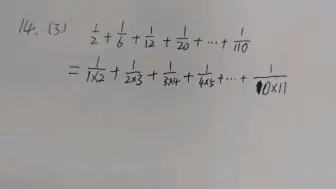 14. (3) 1/2 + 1/6 + 1/12 + 1/20 + ... + 1/110
= 1/1×2 + 1/2×3 + 1/3×4 + 1/4×5 + ... + 1/10×11